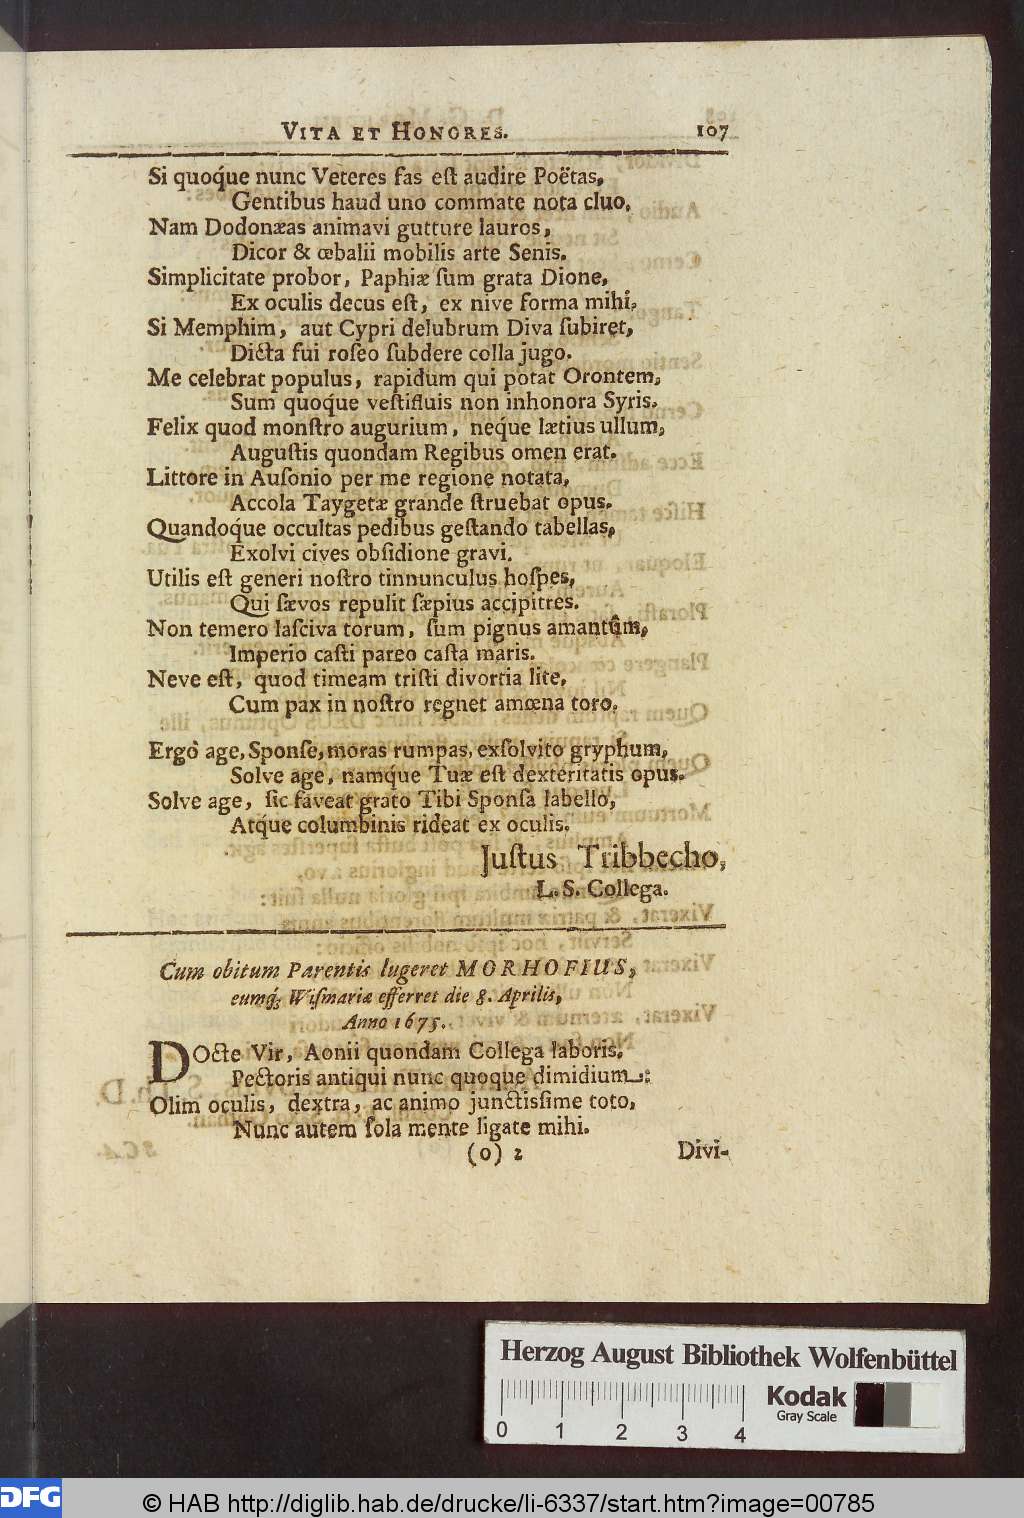 VITA ET HONORES. 107
Si quoq́ue nunc Veteres fas eſt audire Poëtas,
Gentibus haud uno commate nota cluo.
Nam Dodonæas animavi gutture lauros,
Dicor & œbalii mobilis arte Senis.
Simplicitate probor, Paphiæ ſum grata Dione,
Ex oculis decus eſt, ex nive forma mihi,
Si Memphim, aut Cypri delubrum Diva ſubiret,
Dicta fui roſeo ſubdere colla jugo.
Me celebrat populus, rapidum qui potat Orontem,
Sum quoq́ue veſtifluis non inhonora Syris.
Felix quod monſtro augurium, neq́ue lætius ullum,
Auguſtis quondam Regibus omen erat.
Littore in Auſonio per me regione notata,
Accola Taygetæ grande ſtruebat opus.
Quandoq́ue occultas pedibus geſtando tabellas,
Exolvi cives obſidione gravi.
Utilis eſt generi noſtro tinnunculus hoſpes,
Qui ſævos repulit ſæpius accipitres.
Non temero laſciva torum, ſum pignus amantûm,
Imperio caſti pareo caſta maris.
Neve eſt, quod timeam triſti divortia lite,
Cum pax in noſtro regnet amœna toro.
Ergò age, Sponſe, moras rumpas, exſolvito gryphum,
Solve age, namq́ue Tuæ eſt dexteritatis opus.
Solve age, ſic faveat grato Tibi Sponſa labello,
Atq́ue columbinis rideat ex oculis.
Juſtus Tribbecho,
L. S. Collega.
Cum obitum Parentis lugeret MORHOFIUS,
eumq́; Wiſmariæ efferret die 8. Aprilis,
Anno 1675.
DOcte Vir, Aonii quondam Collega laboris,
Pectoris antiqui nunc quoque dimidium:
Olim oculis, dextra, ac animo junctiſſime toto,
Nunc autem ſola mente ligate mihi.
(o) 2 Divi-
Herzog August Bibliothek Wolfenbüttel
Kodak
Gray Scale
0 1 2 3 4
DFG
© HAB http://diglib.hab.de/drucke/li-6337/start.htm?image=00785